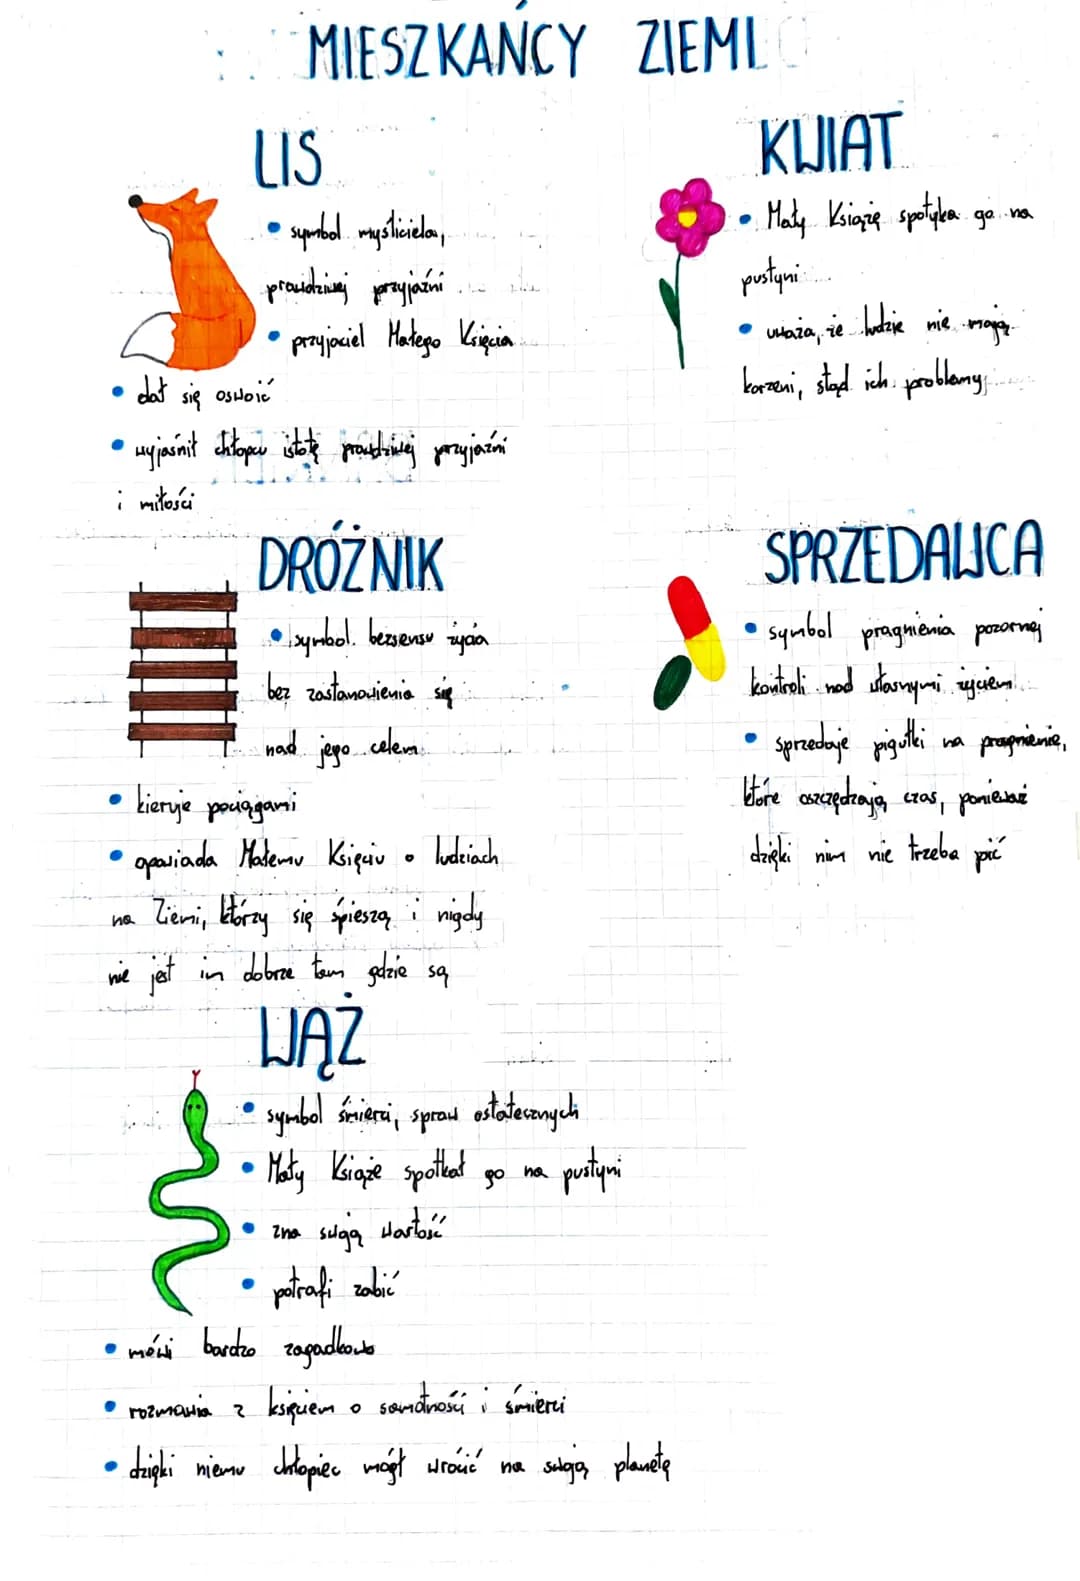 MIESZKAŃCY ZIEMI
LIS
• symbol myśliciela,
prawdziwej przyjaźni
• przyjaciel Małego Księcia
• dał się oswoić
• wyjaśnił chłopcu istotę prawdziwej przyjaźni
i miłości
KWIAT
• Mały Książę spotyka go na
pustyni
• uważa, że ludzie nie mają
korzeni, stąd ich problemy
DRÓŻNIK
• symbol bezsensu życia
bez zastanowienia się
nad jego celem
• kieruje pociągami
• opowiada Małemu Księciu o ludziach
na Ziemi, którzy się śpieszą i nigdy
nie jest im dobrze tam gdzie są
SPRZEDAWCA
• symbol pragnienia pozornej
kontroli nad własnymi życiem
• sprzedaje pigułki na pragnienie,
które oszczędzają czas, ponieważ
dzięki nim nie trzeba pić
WĄŻ
• symbol śmierci, spraw ostatecznych
• Mały Książe spotkał go na pustyni
• zna swoją wartość
• potrafi zabić
• mówi bardzo zagadkowo
• rozmawia z księciem o samotności i śmierci
• dzięki niemu chłopiec mógł wrócić na swoją planetę